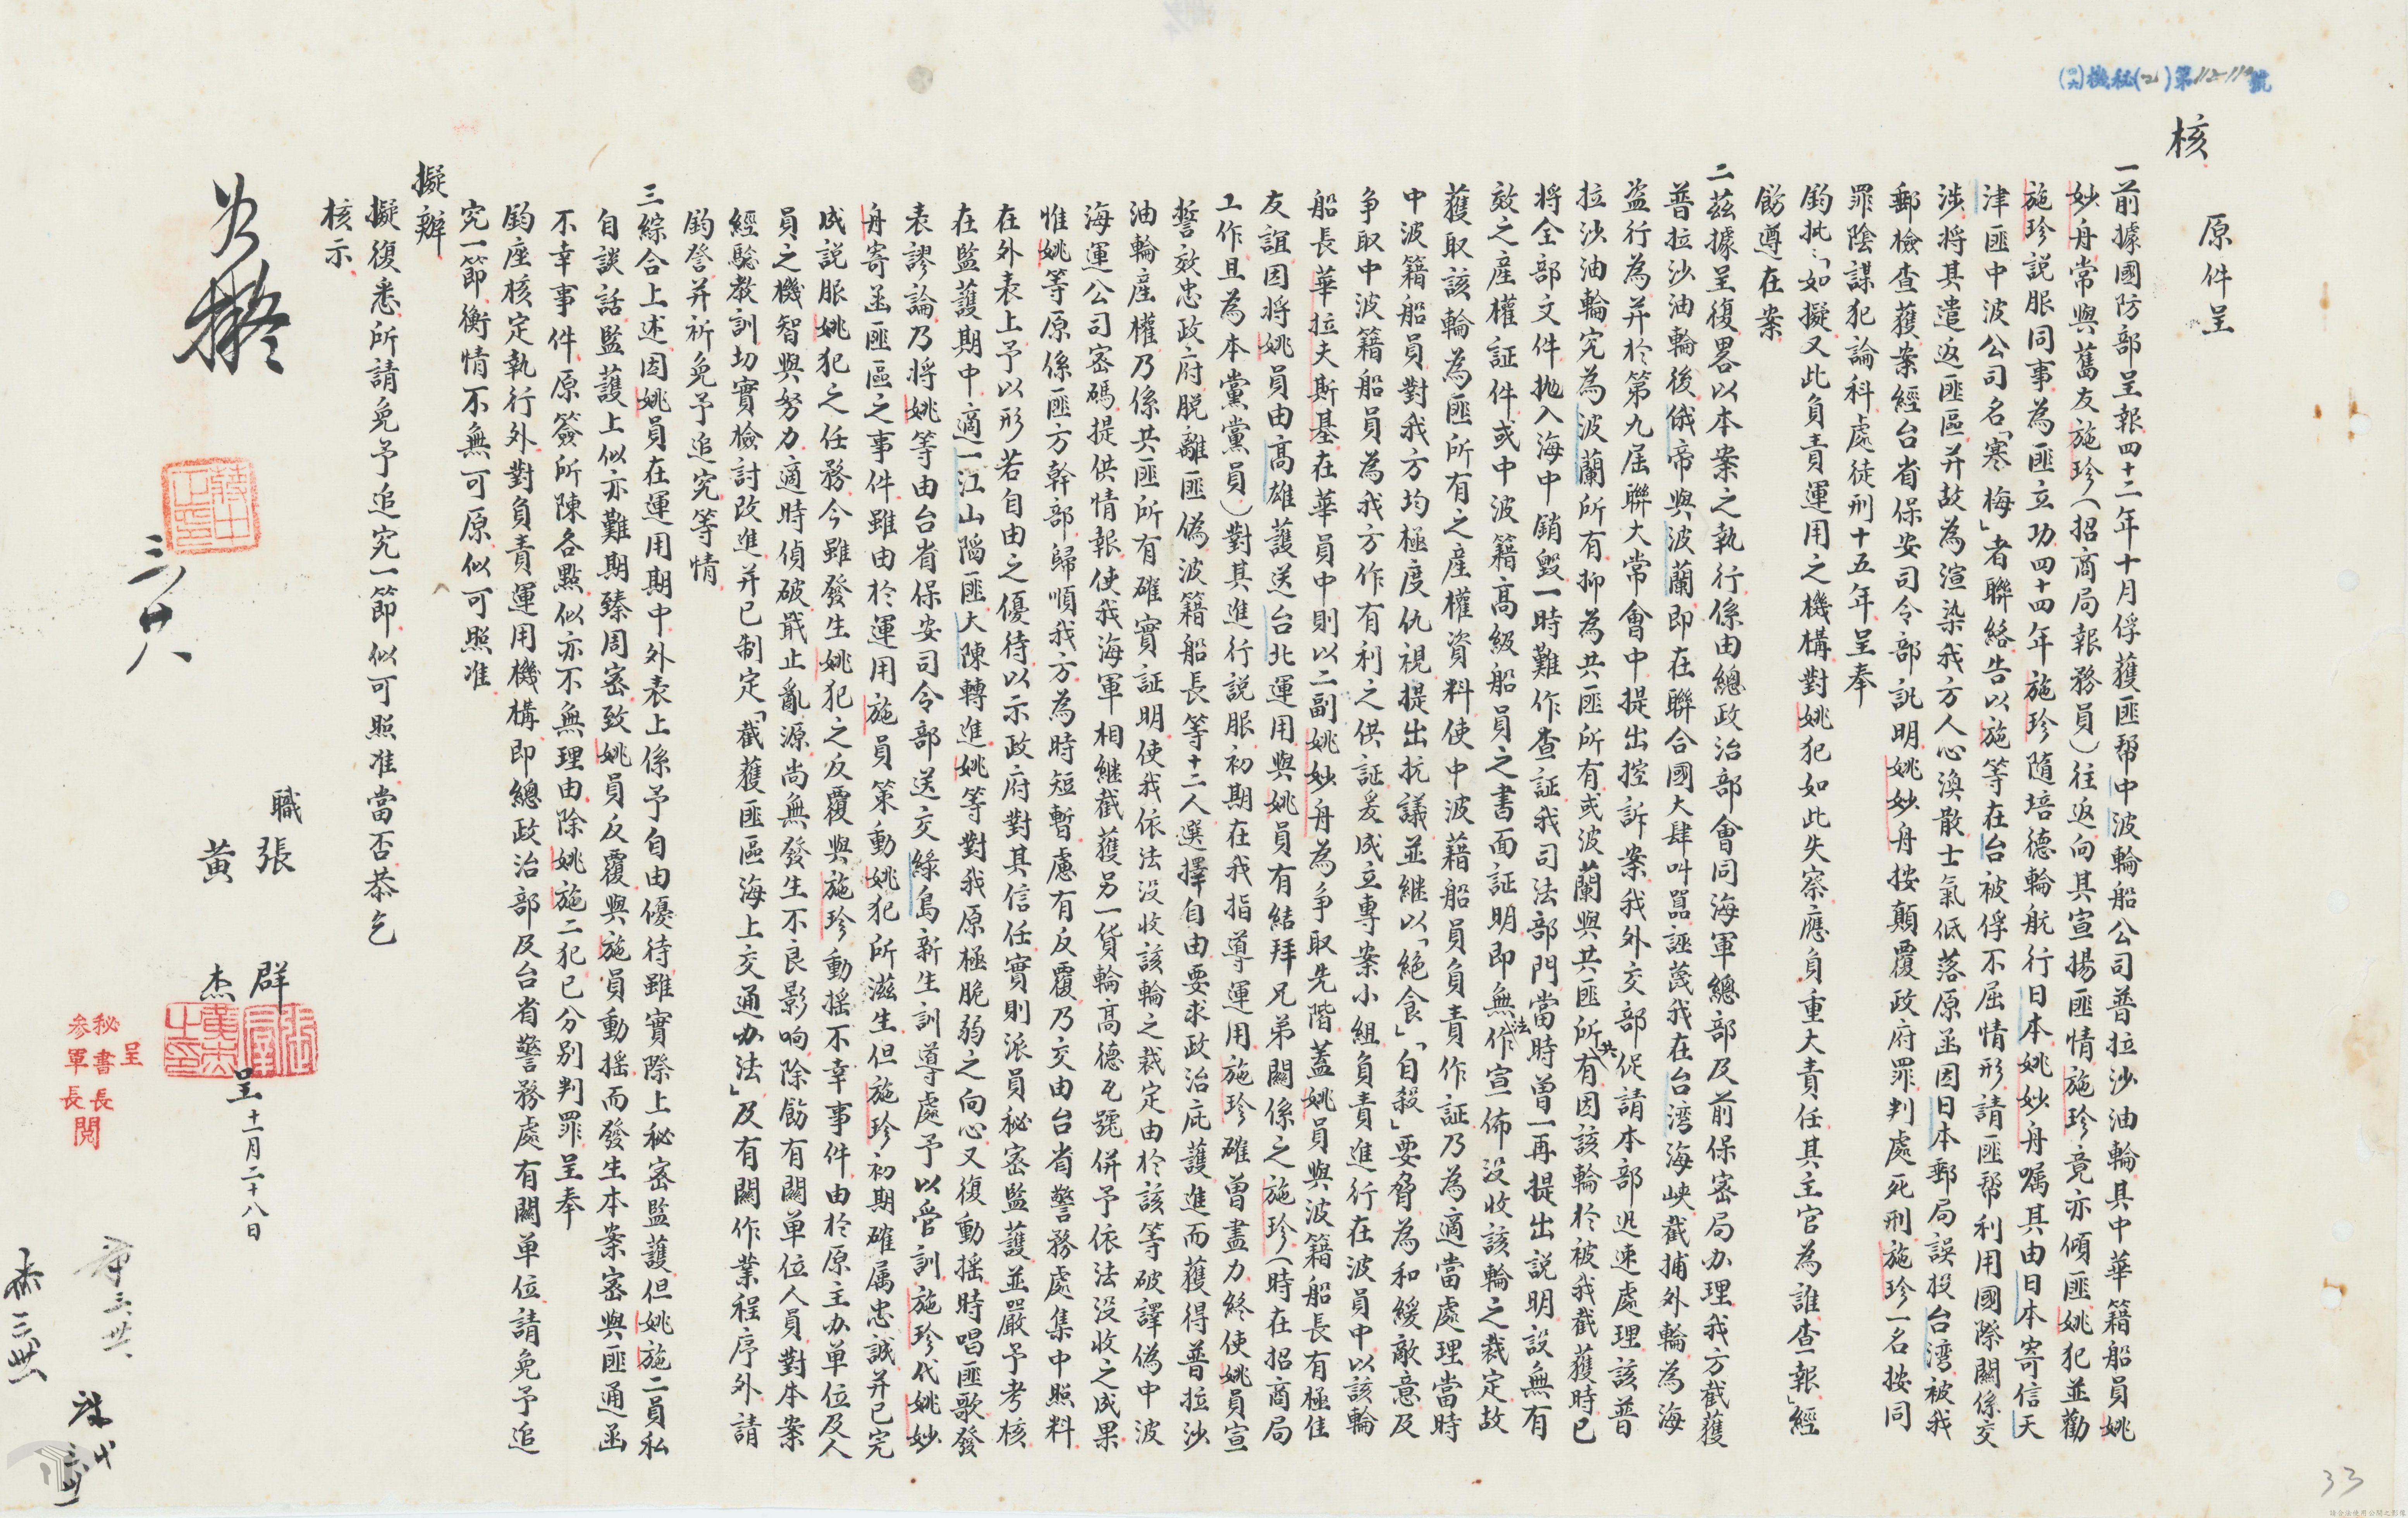 ㈣六機秘(乙)第112-112號
原件呈
核
一前據國防部呈報四十二年十月俘獲匪幫中波輪船公司普拉沙油輪其中華籍船員姚
妙舟常與舊友施珍(招商局報務員)往返向其宣揚匪情施珍竟亦傾匪姚犯並勸
施珍説服同事為匪立功四十四年施珍隨培德輪航行日本姚妙舟囑其由日本寄信天
津匪中波公司名「寒梅」者聯絡告以施等在台被俘不屈情形請匪幫利用國際關係交
涉將其遣返匪區并故為渲染我方人心渙散士氣低落原函因日本郵局誤投台灣被我
郵檢查獲案經台省保安司令部訊明姚妙舟按顛覆政府罪判處死刑施珍一名按同
罪陰謀犯論科處徒刑十五年呈奉
鈞批「如擬又此負責運用之機構對姚犯如此失察應負重大責任其主官為誰查報」經
飭遵在案
二茲據呈復畧以本案之執行係由總政治部會同海軍總部及前保密局办理我方截獲
普拉沙油輪後俄帝與波蘭即在聯合國大肆叫囂誣蔑我在台湾海峽截捕外輪為海
盜行為并於第九屆聯大常會中提出控訴案我外交部促請本部迅速處理該普
拉沙油輪究為波蘭所有抑為共匪所有或波蘭與共匪所共有因該輪於被我截獲時已
將全部文件拋入海中銷毀一時難作查証我司法部門當時曾一再提出説明設無有
效之產權証件或中波籍高級船員之書面証明即無法作宣佈没收該輪之裁定故
獲取該輪為匪所有之產權資料使中波籍船員負責作証乃為適當處理當時
中波籍船員對我方均極度仇視提出抗議並繼以「絕食」「自殺」要脅為和緩敵意及
爭取中波籍船員為我方作有利之供証爰成立專案小組負責進行在波員中以該輪
船長華拉夫斯基在華員中則以二副姚妙舟為爭取先階蓋姚員與波籍船長有極佳
友誼因將姚員由高雄護送台北運用與姚員有結拜兄弟關係之施珍(時在招商局
工作且為本黨黨員)對其進行説服初期在我指導運用施珍確曾盡力終使姚員宣
誓效忠政府脱離匪偽波籍船長等十二人選擇自由要求政治庇護進而獲得普拉沙
油輪產權乃係共匪所有確實証明使我依法没收該輪之裁定由於該等破譯偽中波
海運公司密碼提供情報使我海軍相繼截獲另一貨輪高德瓦號併予依法没收之成果
惟姚等原係匪方幹部歸順我方為時短暫慮有反覆乃交由台省警務處集中照料
在外表上予以形若自由之優待以示政府對其信任實則派員秘密監護並嚴予考核
在監護期中適一江山陷匪大陳轉進姚等對我原極脆弱之向心又復動搖時唱匪歌發
表謬論乃將姚等由台省保安司令部送交綠島新生訓導處予以管訓施珍代姚妙
舟寄函匪區之事件雖由於運用施員策動姚犯所滋生但施珍初期確属忠誠并已完
成説服姚犯之任務今雖發生姚犯之反覆與施珍動搖不幸事件由於原主办单位及人
員之機智與努力適時偵破戢止亂源尚無發生不良影响除飭有關单位人員對本案
經驗教訓切實檢討改進并已制定「截獲匪區海上交通办法」及有關作業程序外請
鈞詧并祈免予追究等情
三綜合上述因姚員在運用期中外表上係予自由優待雖實際上秘密監護但姚施二員私
自談話監護上似亦難期臻周密致姚員反覆與施員動搖而發生本案密與匪通函
不幸事件原簽所陳各點似亦不無理由除姚施二犯已分別判罪呈奉
鈞座核定執行外對負責運用機構即總政治部及台省警務處有關单位請免予追
究一節衡情不無可原似可照准
擬辦
擬復悉所請免予追究一節似可照准當否恭乞
核示
職張群
黃杰
呈十一月二十八日
如擬
三八
蔣中正印
呈
秘書長
參軍長
閱
33